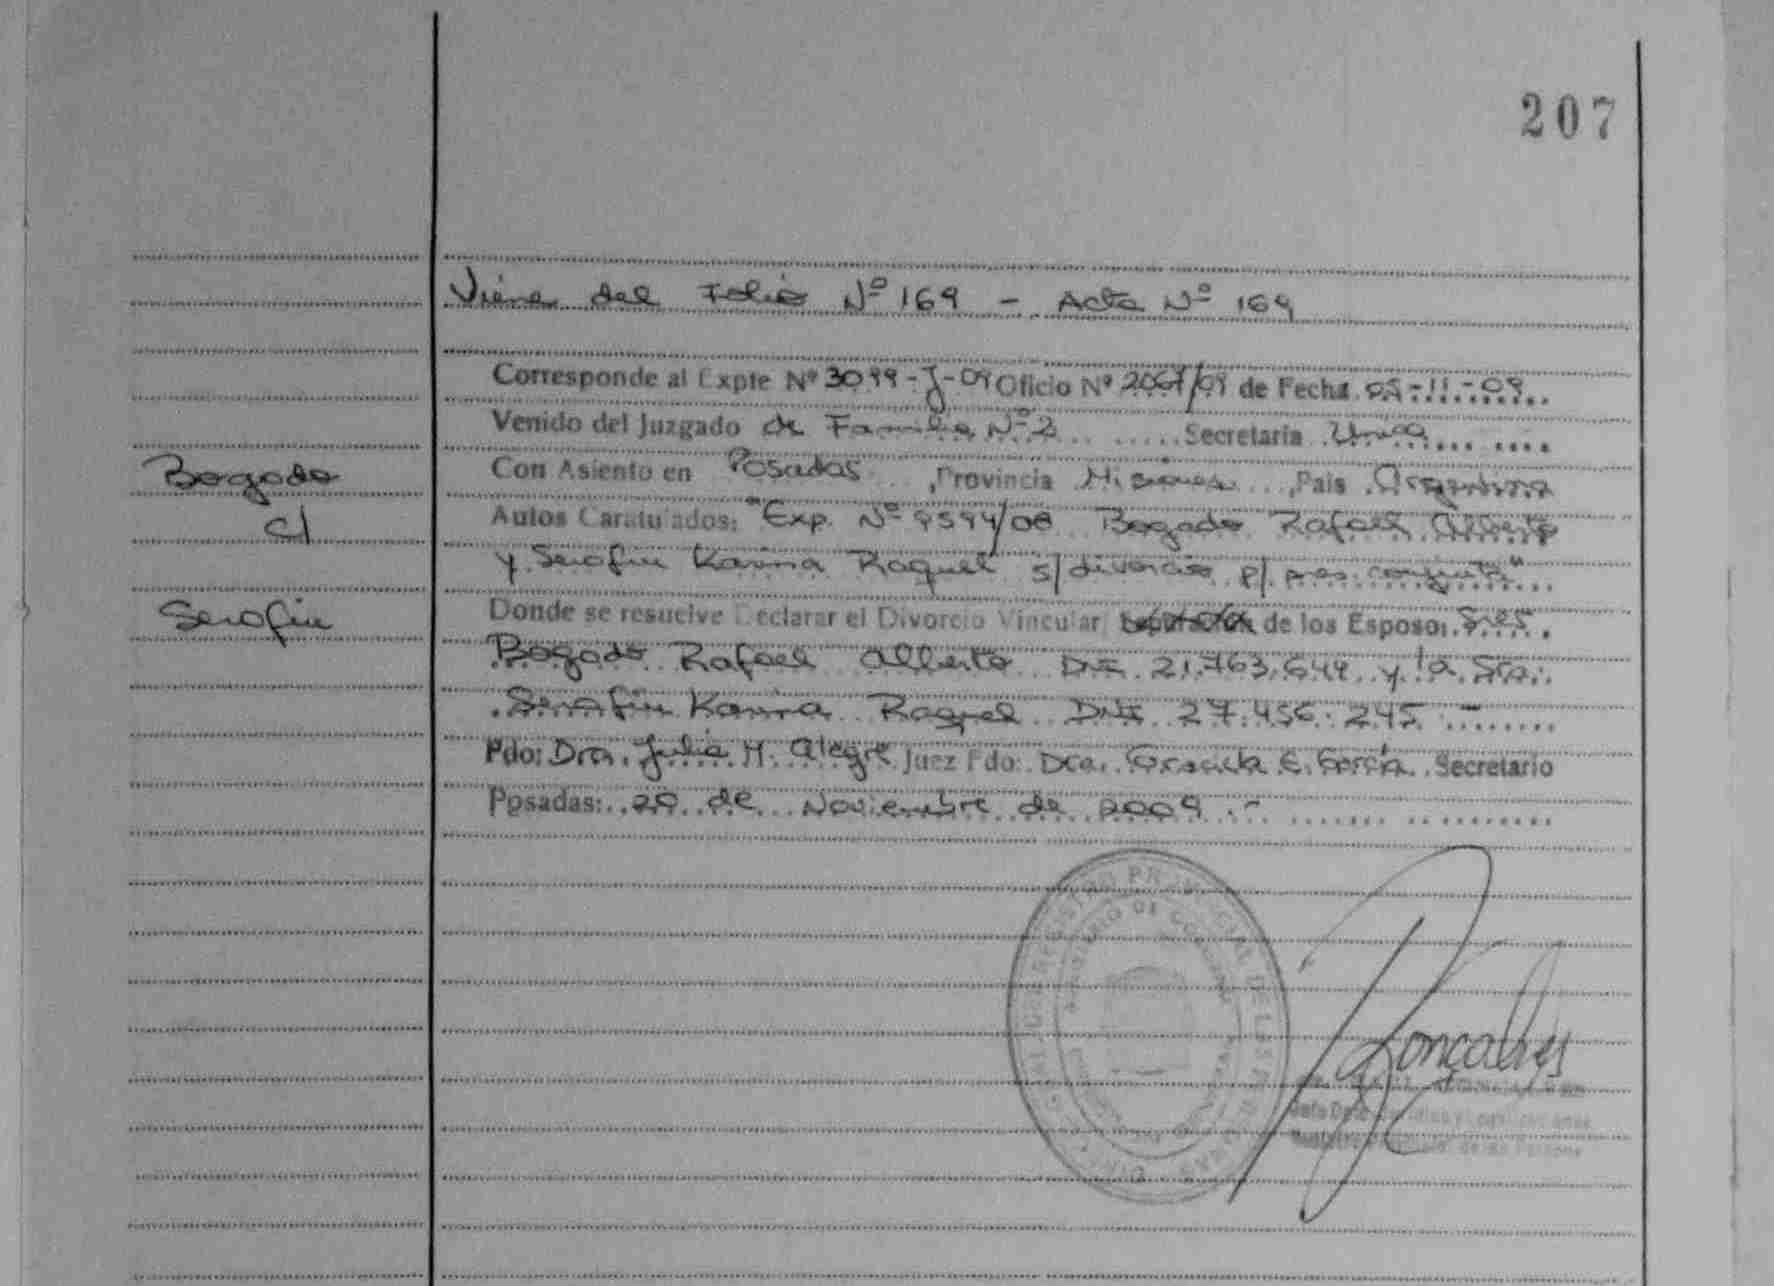 207
Viene del Folio Nº 169 - Acta Nº 169
Corresponde al Expte Nº 3099-J-09 Oficio Nº 2067/09 de Fecha 05-11-09
Venido del Juzgado de Familia Nº 2 Secretaría Unica
Bogado
Con Asiento en Posadas, Provincia Misiones, País Argentina
c/
Autos Caratulados: "Exp. Nº 9594/08 Bogado Rafael Alberto
y Serafin Karina Raquel s/ divorcio p/ pres. conjunta"
Serafin
Donde se resuelve Declarar el Divorcio Vincular de los Esposo: Sres
Bogado Rafael Alberto DNI 21.763.649 y la Sra.
Serafin Karina Raquel DNI 27.456.245 -
Fdo: Dra. Julia M. Alegre Juez Fdo: Dra. Graciela E. García Secretario
Posadas: 20 de Noviembre de 2009 -
Gonçalves